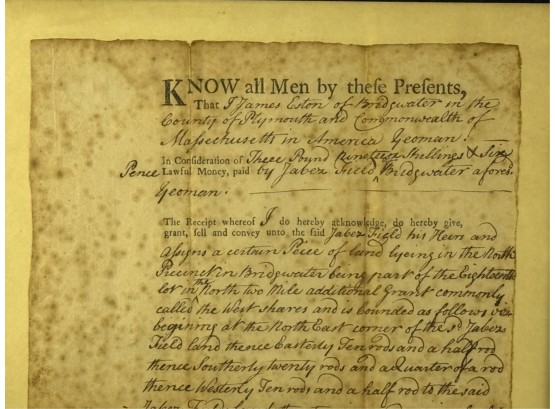 KNOW all Men by theſe Preſents,
That I James Eston of Bridgwater in the
County of Plymouth and Commonwealth of
Massechusetts in America Yeoman.
In Conſideration of Three Pound nineteen Shillings & Six
Pence Lawful Money, paid by Jabez Field Bridgwater afores.
Yeoman.
The Receipt whereof I do hereby acknowledge, do hereby give,
grant, ſell and convey unto the ſaid Jabez Field his Heirs and
Assigns a certain Peice of land lyeing in the North
Precinct in Bridgwater being part of the Eighteenth
lot in the North two Mile additional Grant commonly
called the West shares and is bounded as follows viz
beginning at the North East corner of the sd Jabez
Field land thence Easterly Ten rods and a half rod
thence Southerly twenty rods and a Quarter of a rod
thence Westerly Ten rods and a half rod to the said
Jabez Field